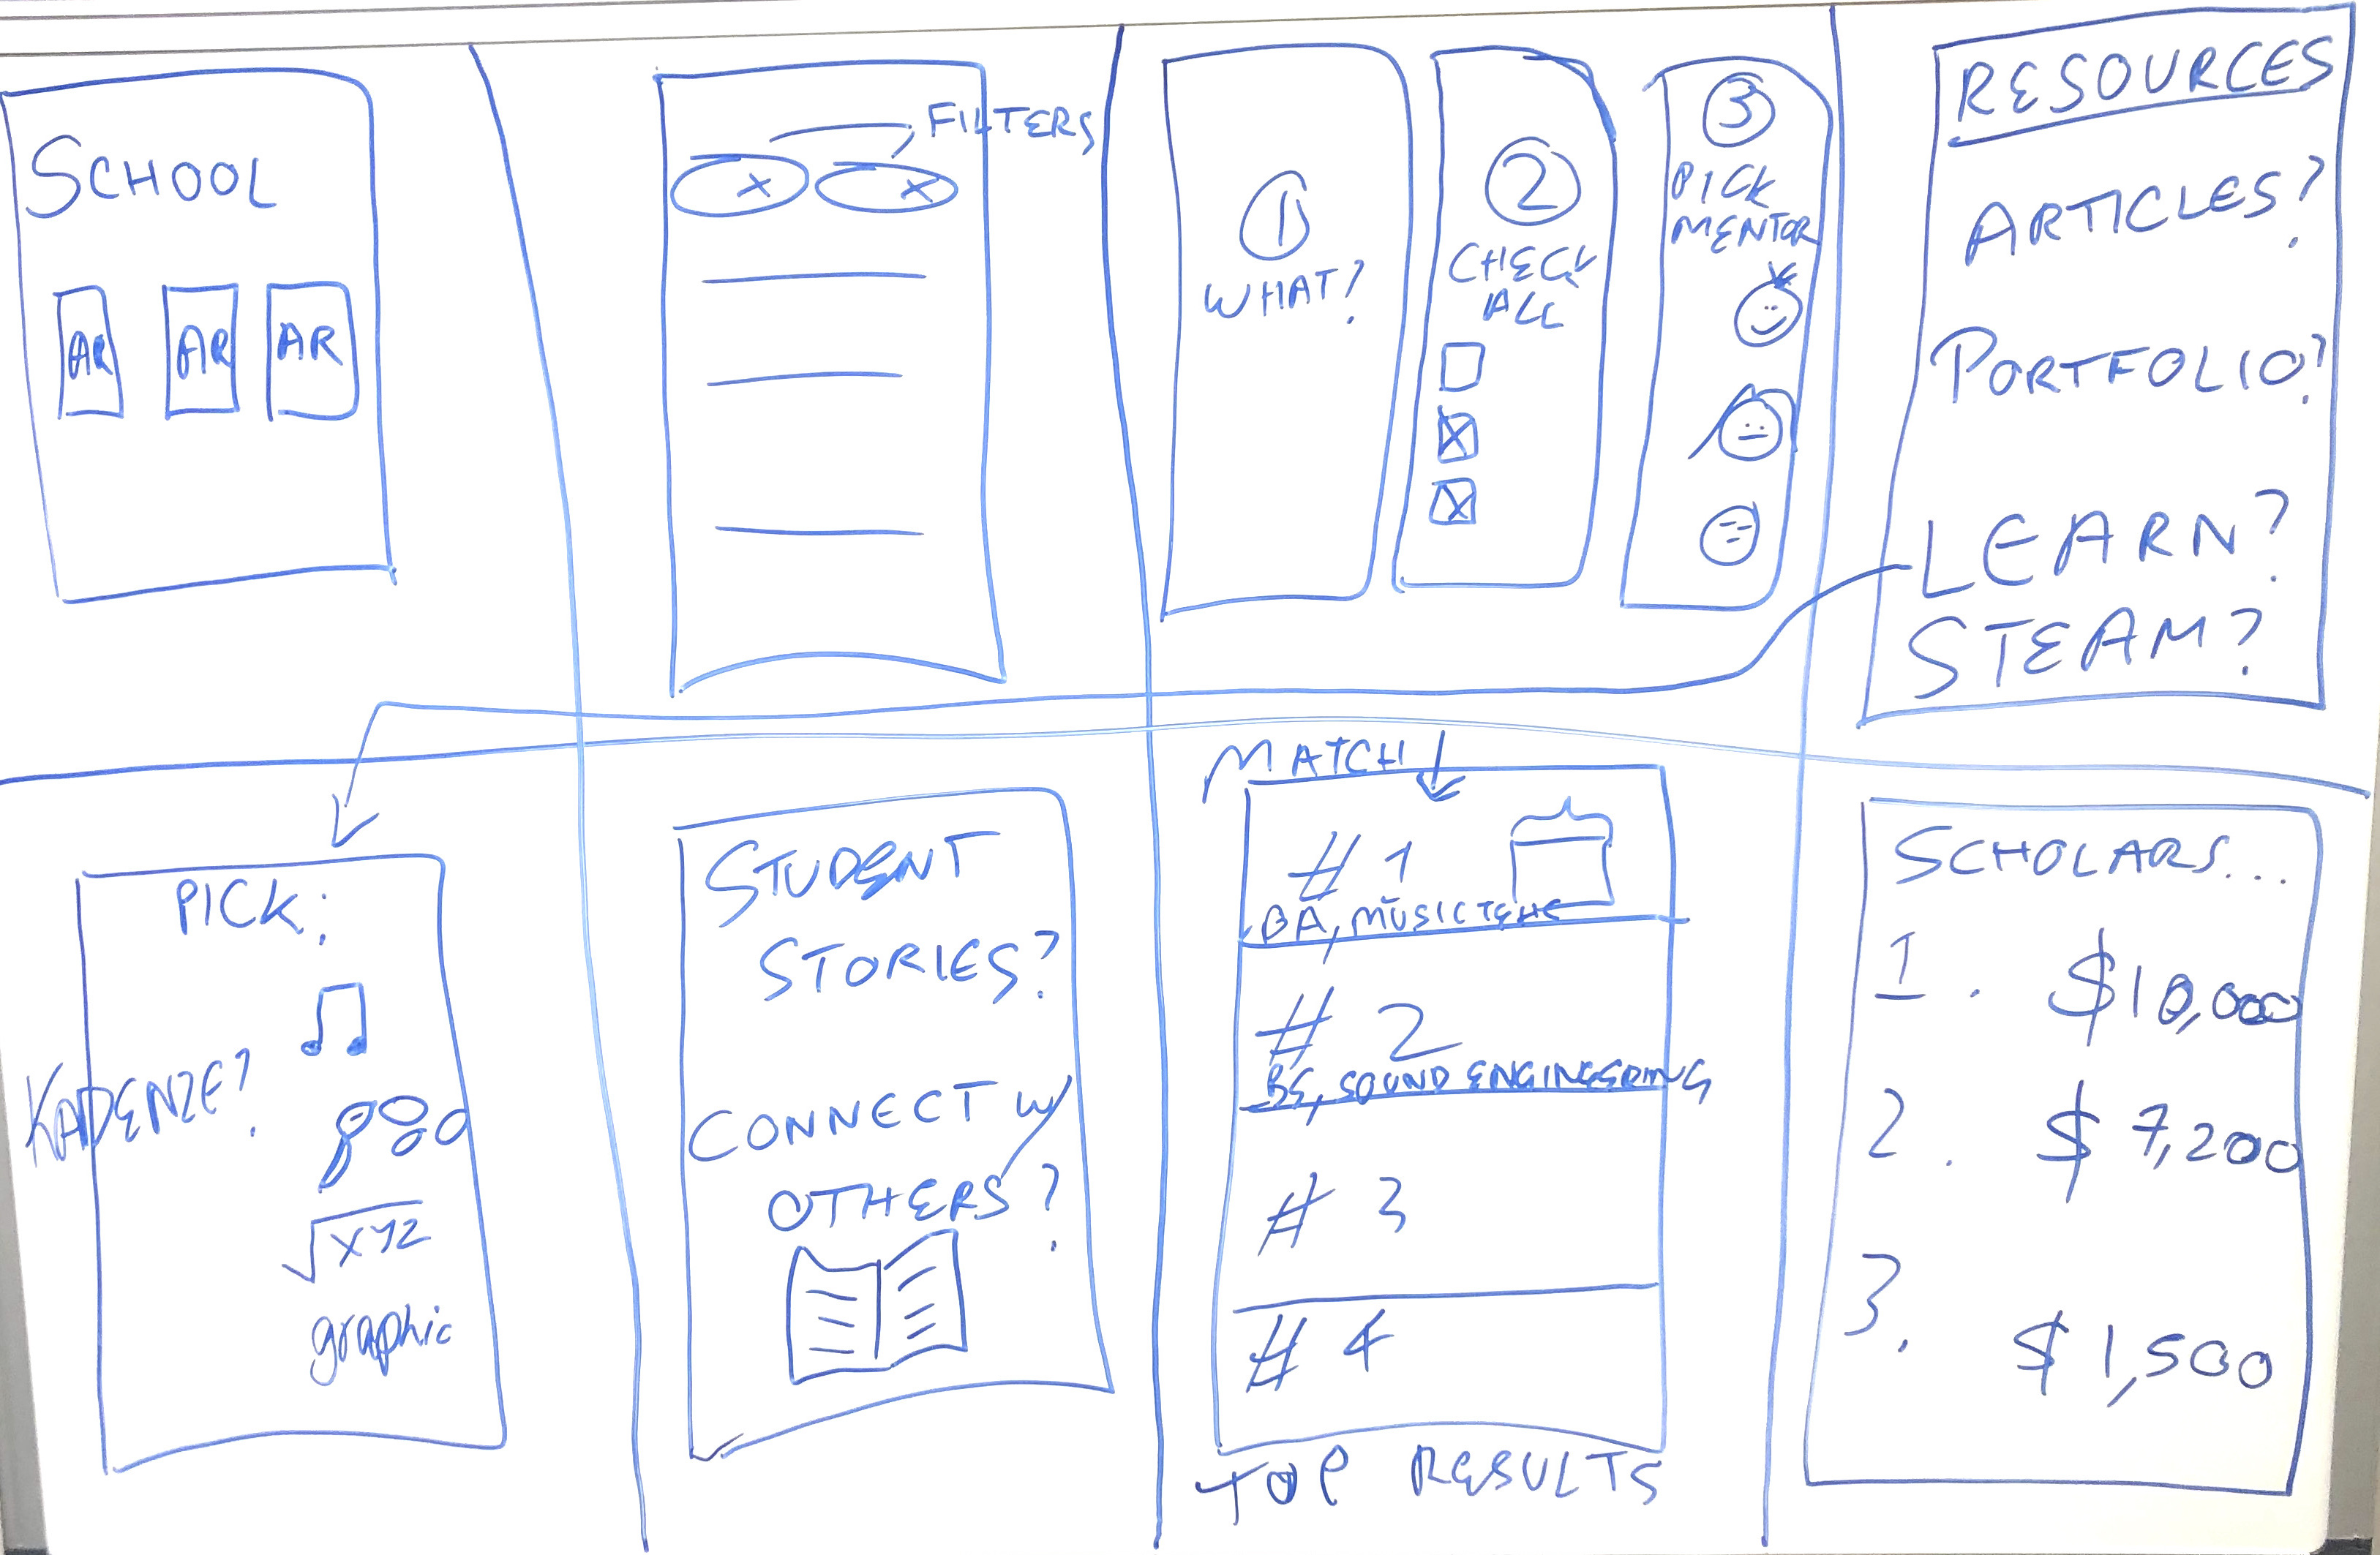 SCHOOL
AR AR AR
FILTERS
x x
1
WHAT?
2
CHECK
ALL
3
PICK
MENTOR
RESOURCES
ARTICLES?
PORTFOLIO?
LEARN?
STEAM?
PICK:
KADENZE?
√XYZ
graphic
STUDENT
STORIES?
CONNECT W/
OTHERS?
MATCH
# 1
BA, MUSIC
# 2
BS, SOUND ENGINEERING
# 3
# 4
TOP RESULTS
SCHOLARS...
1. $10,000
2. $7,200
3. $1,500